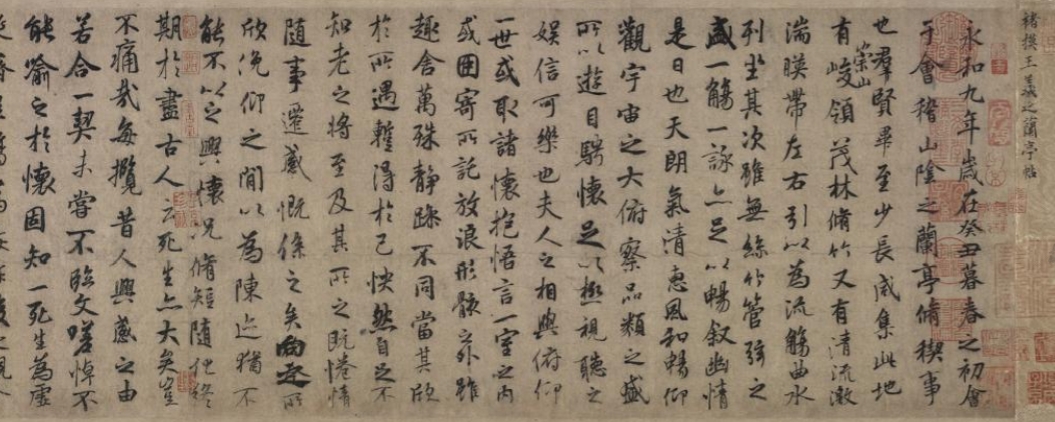 褚摸王羲之蘭亭帖
永和九年歲在癸丑暮春之初會
于會稽山陰之蘭亭脩稧事
也羣賢畢至少長咸集此地
有崇山峻領茂林脩竹又有清流激
湍暎帶左右引以為流觴曲水
列坐其次雖無絲竹管弦之
盛一觴一詠亦足以暢叙幽情
是日也天朗氣清惠風和暢仰
觀宇宙之大俯察品類之盛
所以遊目騁懷足以極視聽之
娛信可樂也夫人之相與俯仰
一世或取諸懷抱悟言一室之內
或因寄所託放浪形骸之外雖
趣舍萬殊靜躁不同當其欣
於所遇蹔得於己怏然自足不
知老之將至及其所之既惓情
隨事遷感慨係之矣向之所
欣俛仰之閒以為陳迹猶不
能不以之興懷況脩短隨化終
期於盡古人云死生亦大矣豈
不痛哉每攬昔人興感之由
若合一契未嘗不臨文嗟悼不
能喻之於懷固知一死生為虛